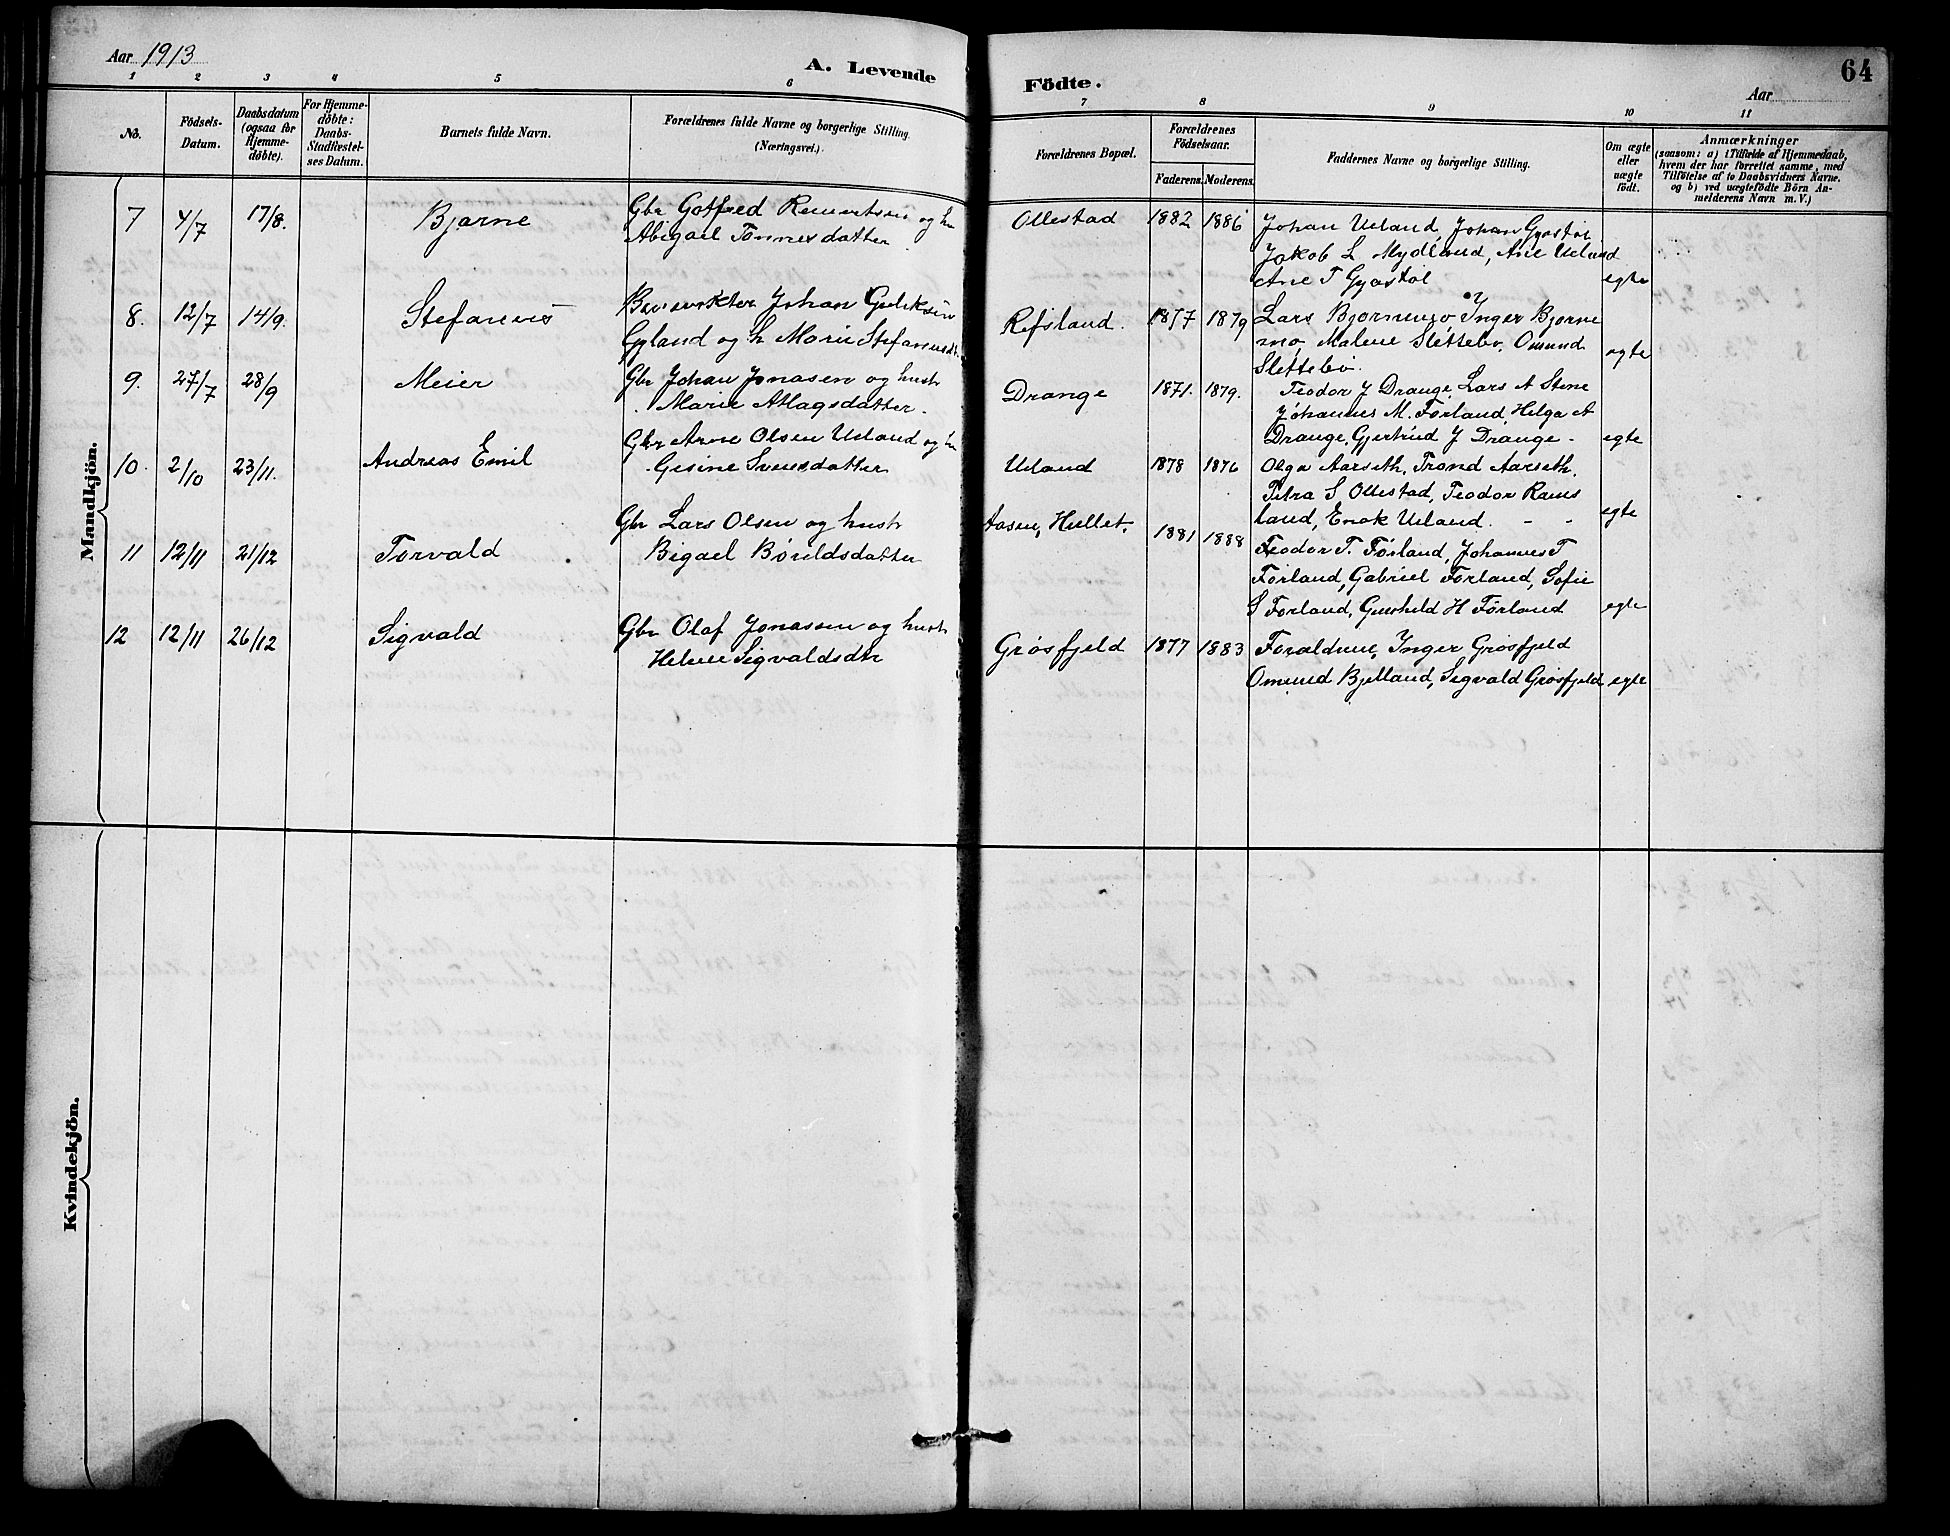 Aar 1913
A. Levende Födte.
64
Aar
1 2 3 4 5 6 7 8 9 10 11
No.
Födsels-
Datum.
Daabsdatum
(ogsaa for
Hjemme-
döbte).
For Hjemme-
döbte:
Daabs-
Stadfæstel-
ses Datum.
Barnets fulde Navn.
Forældrenes fulde Navne og borgerlige Stilling.
(Næringsvei.)
Forældrenes Bopæl.
Forældrenes
Födselsaar.
Faderens. Moderens.
Faddernes Navne og borgerlige Stilling.
Om ægte
eller
uægte
födt.
Anmærkninger
(saasom: a) i Tilfælde af Hjemmedaab,
hvem der har forrettet samme, med
Tilföielse af to Daabsvidners Navne.
og b) ved uægtefödte Börn An-
melderens Navn m. V.)
Mandkjön.
7 4/7 17/8. Bjarne Gbr Gotfred
og hu
Abigael Tønnesdatter
Ollestad 1882 1886 Johan Ueland, Johan Gyastøl
Jakob L Mydland, Ane Ueland
Ane T Gyastøl egte
8. 12/7 14/9. Stefanus Johan Guliksen
Gyland og h Marie Stefanusdt.
Refsland. 1877 1879 Lars Bjørnemo Inger Bjørne
mo Malene Slettebø, Omund
Slettebø. egte
9. 27/7 28/9 Meier Gbr Johan Jonasen og hustr
Marie Aslagsdatter.
Drange 1871. 1879. Teodor J Drange, Lars A Stene
Johannes M. Førland, Helga A
Drange, Gjertrud J Drange - egte
10. 2/10 23/11. Andreas Emil Gbr Arne Olsen Ueland og hu
Gesine Svensdatter
Ueland 1878 1876 Olga Aarseth, Trond Aarseth,
Petra S Ollestad, Teodor Rams
land, Enok Ueland. - - egte
11 12/11 21/12 Torvald Gbr Lars Olsen og hustr
Bigael Båreldsdatter
Aasen, Hellet. 1881 1888 Teodor T. Førland, Johannes T
Førland, Gabriel Førland, Sofie
S Førland, Gunhild H Førland egte
12 12/11 26/12 Sigvald Gbr Olaf Jonassen og hustr
Helene Sigvaldsdtr
Grøsfjeld 1877 1883 Forældrene, Inger Grøsfjeld
Omund Bjelland, Sigvald Grøsfjeld egte
Kvindekjön.